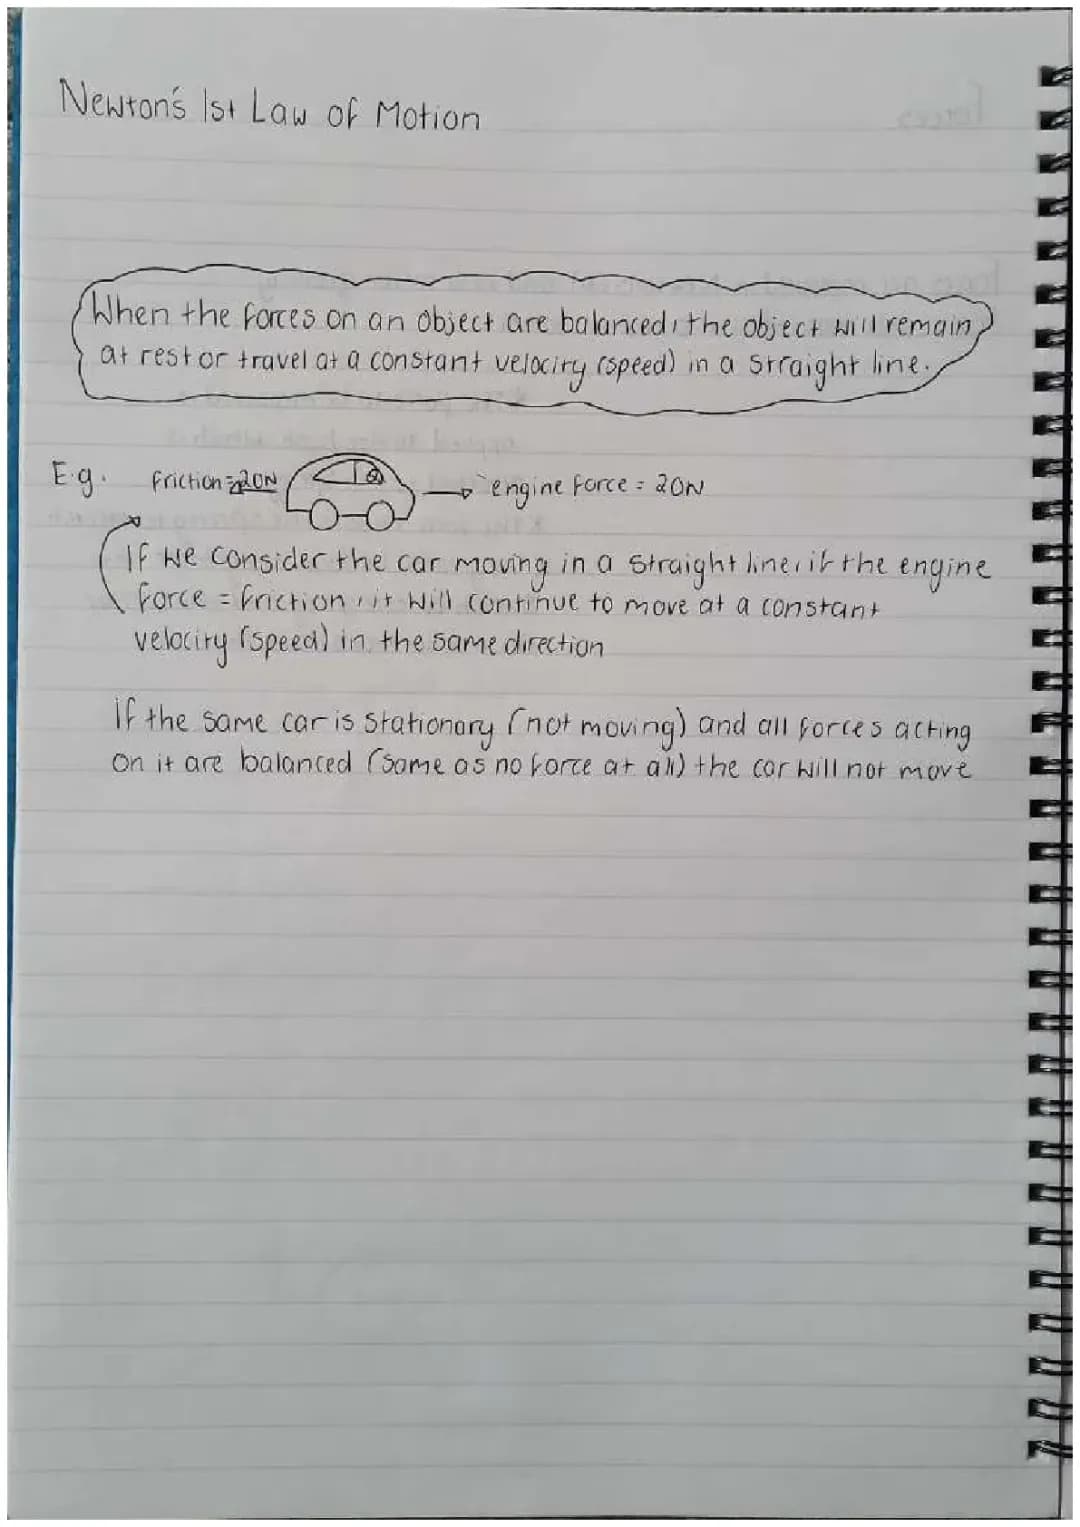 Newton's 1st Law of Motion
When the forces on an object are balanced, the object will remain
at rest or travel at a constant velocity (speed) in a straight line.
E.g. friction = 20N engine force = 20N
If we consider the car moving in a straight line, if the engine
force = friction, it will continue to move at a constant
velocity (speed) in the same direction
If the same car is stationary (not moving) and all forces acting
on it are balanced (same as no force at all) the car will not move